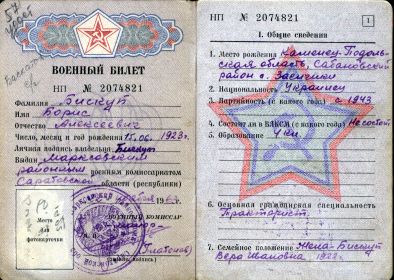 57
ВОЕННЫЙ БИЛЕТ
НП № 2074821
Фамилия Бискуп
Имя Борис
Отчество Алексеевич
Число, месяц и год рождения 15.06.1923г.
Личная подпись владельца Бискуп
Выдан Марксовским
районным военным комиссариатом
Саратовской области (республики)
ВОЕННЫЙ КОМИССАР
Место
для
фотокарточки
(Платонов)
НП № 2074821
1
I. Общие сведения
1. Место рождения Каменец-Подоль-
ская область, Сатановский
район с.
2. Национальность Украинец
3. Партийность (с какого года) с 1943
4. Состоял ли в ВЛКСМ (с какого года) Не состоял
5. Образование 4 кл.
6. Основная гражданская специальность
Тракторист
7. Семейное положение Жена-Бискуп
Вера Ивановна